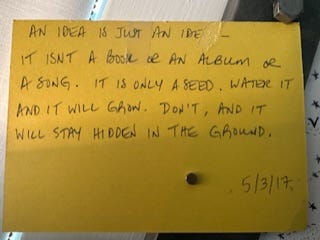 AN IDEA IS JUST AN IDEA_
IT ISNT A BOOK OR AN ALBUM OR
A SONG. IT IS ONLY A SEED. WATER IT
AND IT WILL GROW. DON'T, AND IT
WILL STAY HIDDEN IN THE GROUND.
5/3/17.